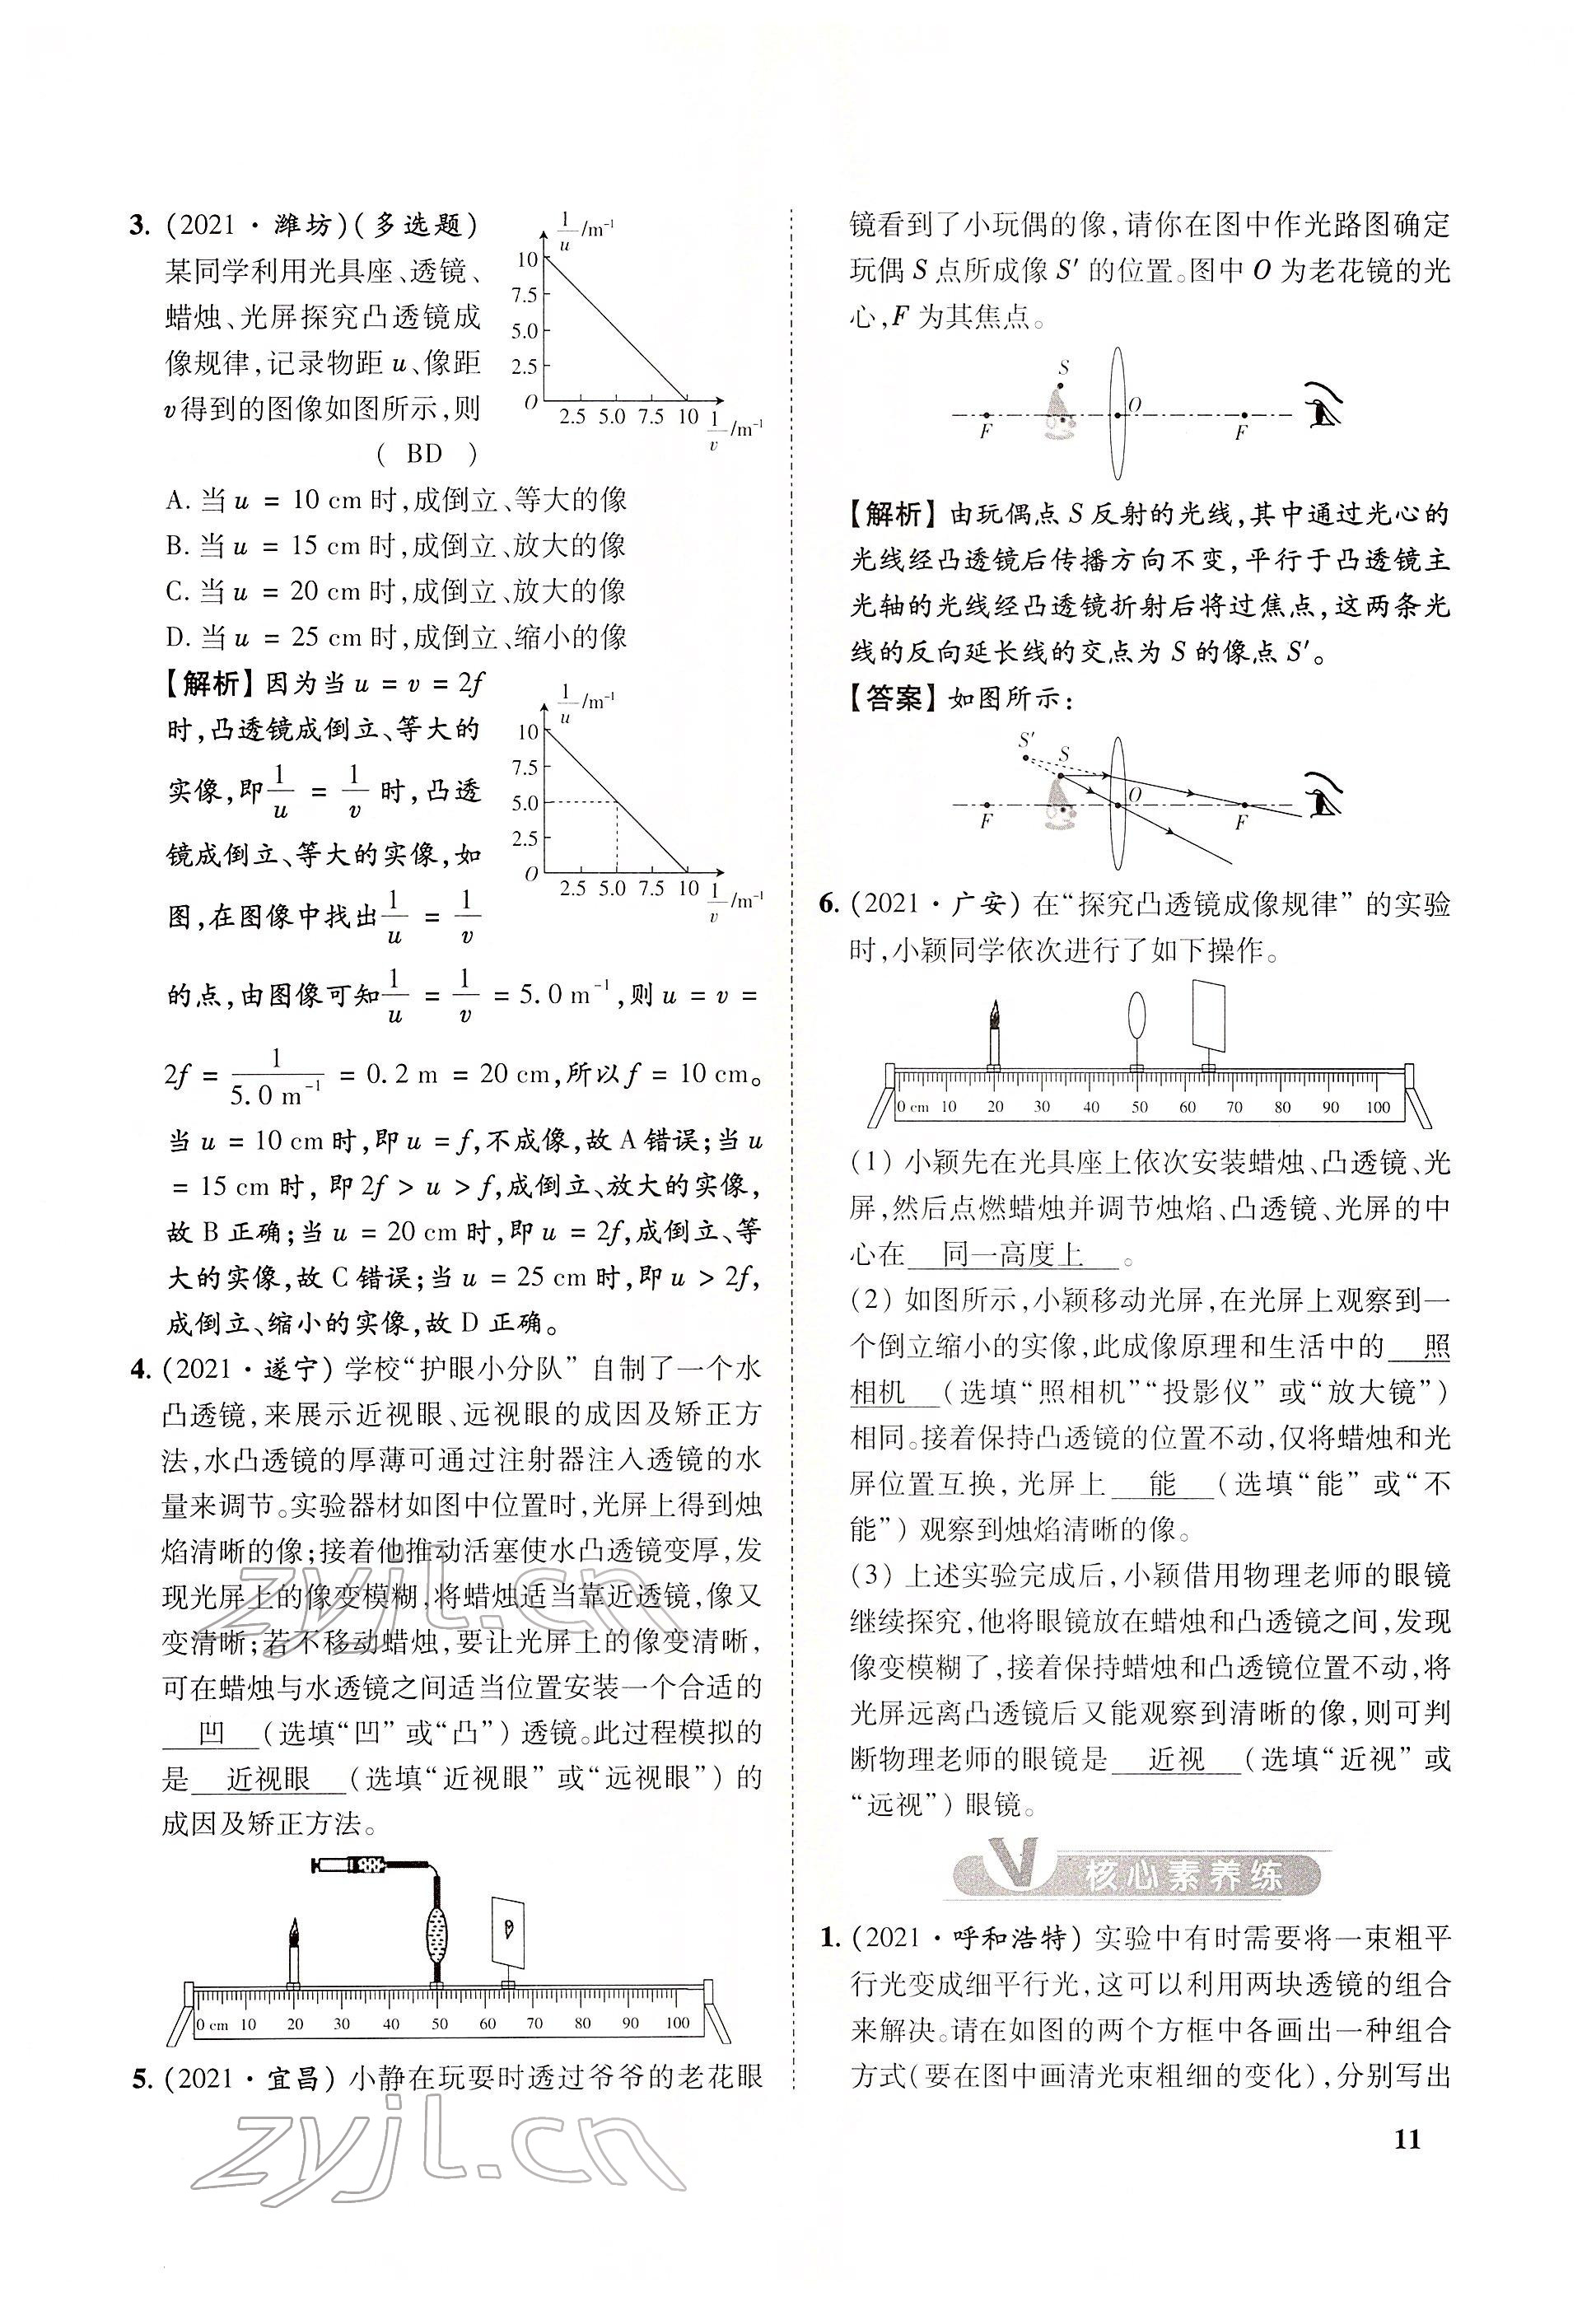 3. (2021·潍坊)(多选题)
某同学利用光具座、透镜、
蜡烛、光屏探究凸透镜成
像规律,记录物距 u、像距
v得到的图像如图所示,则
( BD )
1/u /m⁻¹
10
7.5
5.0
2.5
O
2.5 5.0 7.5 10 1/v /m⁻¹
A. 当 u = 10 cm 时,成倒立、等大的像
B. 当 u = 15 cm 时,成倒立、放大的像
C. 当 u = 20 cm 时,成倒立、放大的像
D. 当 u = 25 cm 时,成倒立、缩小的像
【解析】因为当 u = v = 2f
时,凸透镜成倒立、等大的
实像,即 1/u = 1/v 时,凸透
镜成倒立、等大的实像,如
图,在图像中找出 1/u = 1/v
1/u /m⁻¹
10
7.5
5.0
2.5
O
2.5 5.0 7.5 10 1/v /m⁻¹
的点,由图像可知 1/u = 1/v = 5.0 m⁻¹,则 u = v =
2f = 1/5.0 m⁻¹ = 0.2 m = 20 cm,所以 f = 10 cm。
当 u = 10 cm 时,即 u = f,不成像,故 A 错误;当 u
= 15 cm 时,即 2f > u > f,成倒立、放大的实像,
故 B 正确;当 u = 20 cm 时,即 u = 2f,成倒立、等
大的实像,故 C 错误;当 u = 25 cm 时,即 u > 2f,
成倒立、缩小的实像,故 D 正确。
4. (2021·遂宁) 学校“护眼小分队” 自制了一个水
凸透镜,来展示近视眼、远视眼的成因及矫正方
法,水凸透镜的厚薄可通过注射器注入透镜的水
量来调节。实验器材如图中位置时,光屏上得到烛
焰清晰的像;接着他推动活塞使水凸透镜变厚,发
现光屏上的像变模糊,将蜡烛适当靠近透镜,像又
变清晰;若不移动蜡烛,要让光屏上的像变清晰,
可在蜡烛与水透镜之间适当位置安装一个合适的
凹 (选填“凹” 或“凸”) 透镜。此过程模拟的
是 近视眼 (选填“近视眼” 或“远视眼”) 的
成因及矫正方法。
0 cm 10 20 30 40 50 60 70 80 90 100
5. (2021·宜昌) 小静在玩耍时透过爷爷的老花眼
镜看到了小玩偶的像,请你在图中作光路图确定
玩偶 S 点所成像 S′ 的位置。图中 O 为老花镜的光
心,F 为其焦点。
S
O
F
F
【解析】由玩偶点 S 反射的光线,其中通过光心的
光线经凸透镜后传播方向不变,平行于凸透镜主
光轴的光线经凸透镜折射后将过焦点,这两条光
线的反向延长线的交点为 S 的像点 S′。
【答案】如图所示:
S′
S
O
F
F
6. (2021·广安) 在“探究凸透镜成像规律” 的实验
时,小颖同学依次进行了如下操作。
0 cm 10 20 30 40 50 60 70 80 90 100
(1) 小颖先在光具座上依次安装蜡烛、凸透镜、光
屏,然后点燃蜡烛并调节烛焰、凸透镜、光屏的中
心在 同一高度上 。
(2) 如图所示,小颖移动光屏,在光屏上观察到一
个倒立缩小的实像,此成像原理和生活中的 照
相机 (选填“照相机”“投影仪” 或“放大镜”)
相同。接着保持凸透镜的位置不动,仅将蜡烛和光
屏位置互换,光屏上 能 (选填“能” 或“不
能”) 观察到烛焰清晰的像。
(3) 上述实验完成后,小颖借用物理老师的眼镜
继续探究,他将眼镜放在蜡烛和凸透镜之间,发现
像变模糊了,接着保持蜡烛和凸透镜位置不动,将
光屏远离凸透镜后又能观察到清晰的像,则可判
断物理老师的眼镜是 近视 (选填“近视” 或
“远视”) 眼镜。
V 核心素养练
1. (2021·呼和浩特) 实验中有时需要将一束粗平
行光变成细平行光,这可以利用两块透镜的组合
来解决。请在如图的两个方框中各画出一种组合
方式(要在图中画清光束粗细的变化),分别写出
11
zyjl.cn
zyjl.cn